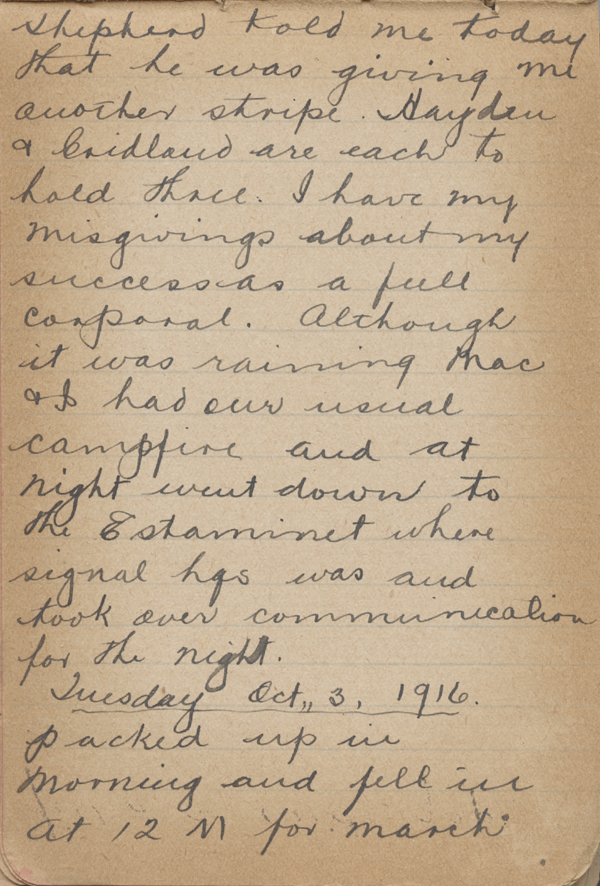 Shepherd told me today
that he was giving me
another stripe. Hayden
& Cridland are each to
hold three. I have my
misgivings about my
success as a full
corporal. Although
it was raining Mac
& I had our usual
campfire and at
night went down to
the Estaminet where
signal hqs was and
took over communication
for the night.
Tuesday Oct,, 3, 1916.
packed up in
morning and fell in
at 12 N for march